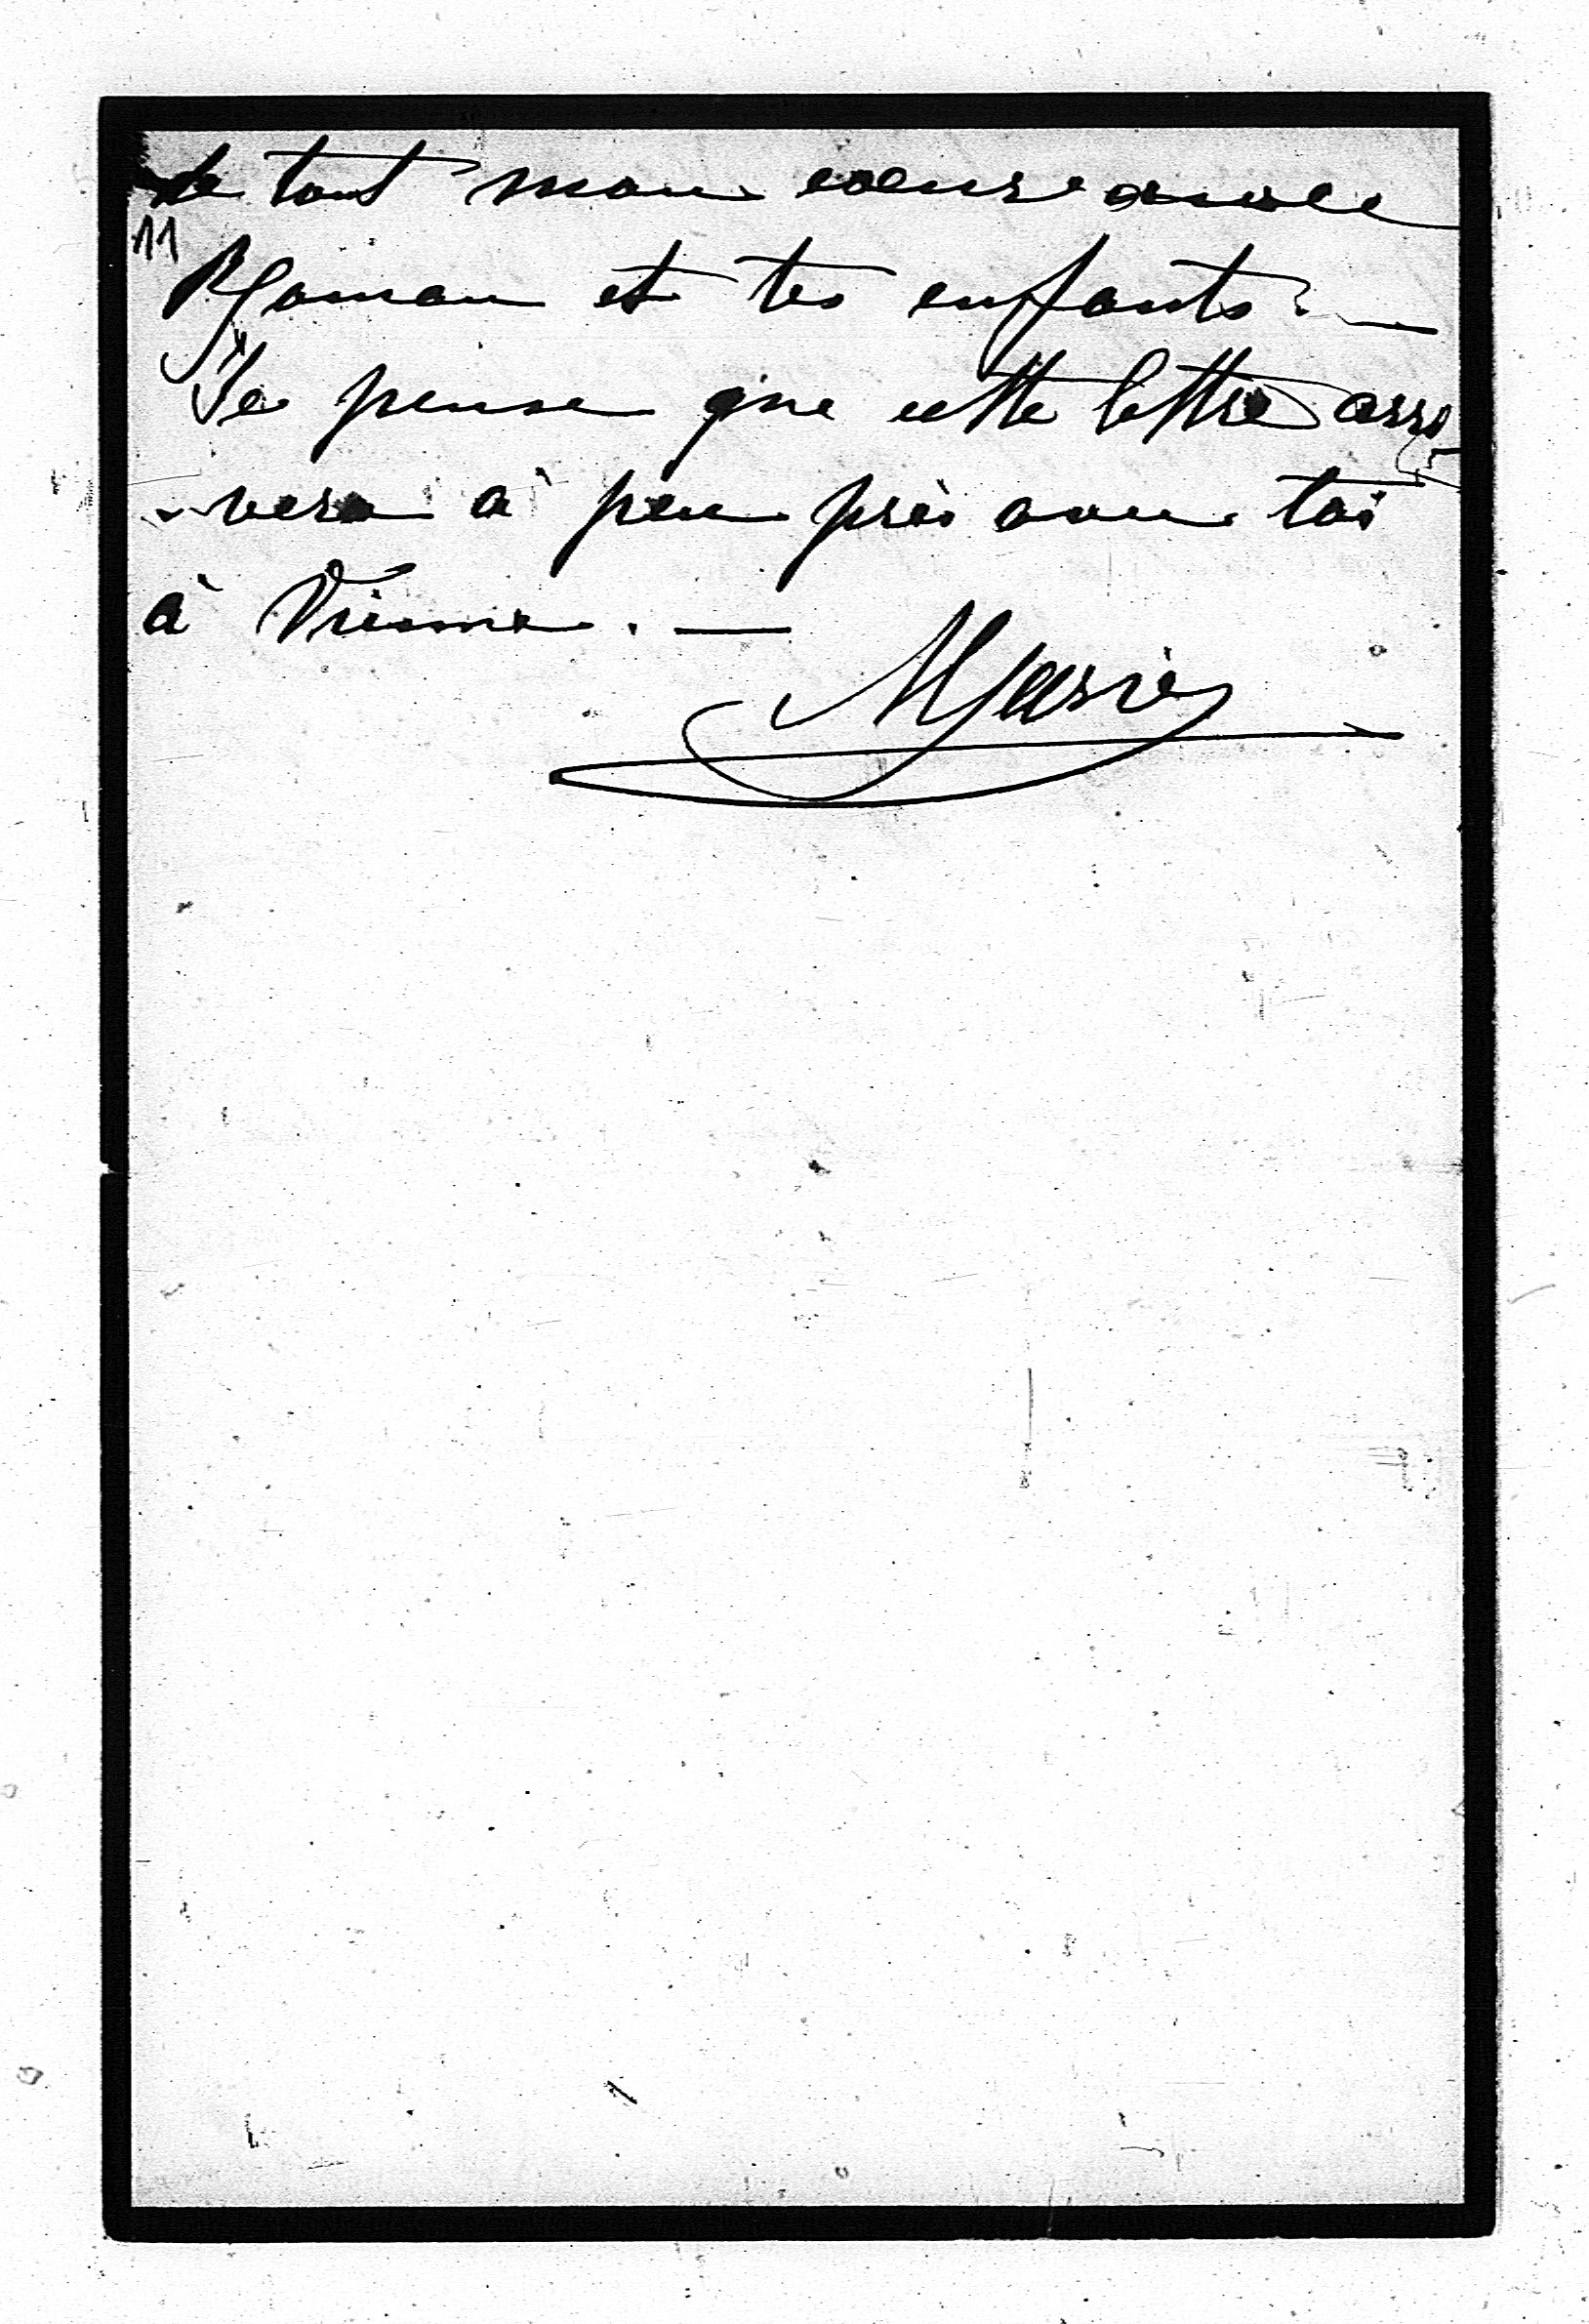 de tout mon coeur avec
11
Maman et tes enfants. —
Je pense que cette lettre arri
- vera à peu près avec toi
à Vienne. —
Marie